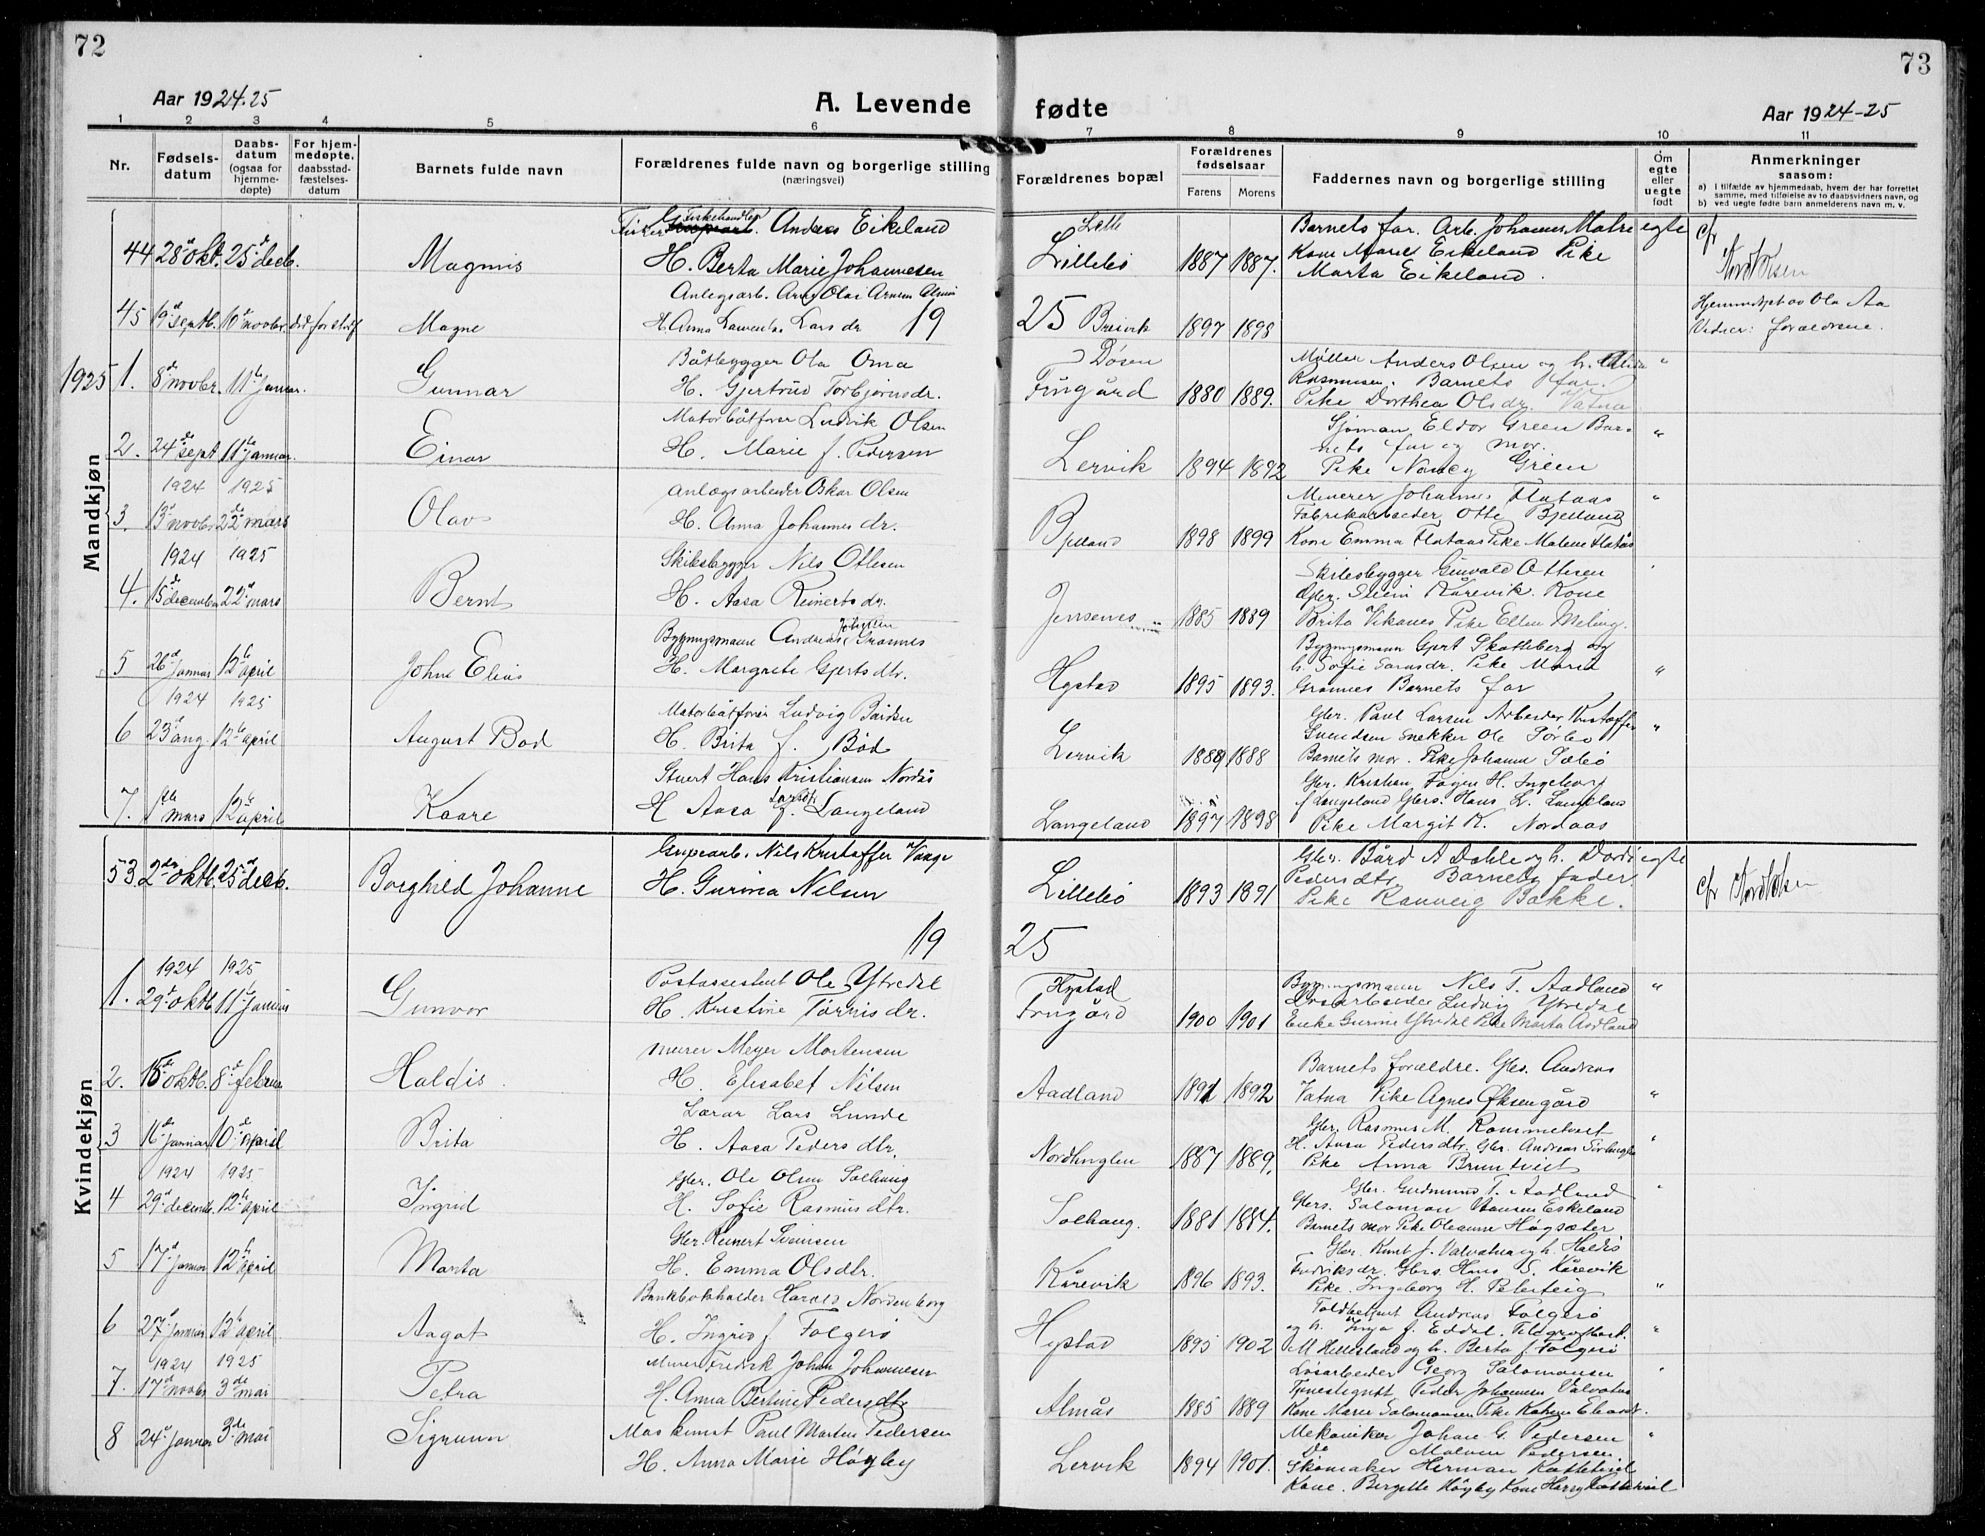 72
73
Aar 1924-25
A. Levende
fødte
Aar 1924-25
1 2 3 4 5 6 7 8 9 10 11
Nr.
Fødsels-
datum
Daabs-
datum
(ogsaa for
hjemme-
døpte)
For hjem-
medøpte,
daabsstad-
fæstelses-
datum
Barnets fulde navn
Forældrenes fulde navn og borgerlige stilling
(næringsvei)
Forældrenes bopæl
Forældrenes
fødselsaar
Farens
Morens
Faddernes navn og borgerlige stilling
Om
egte
eller
uegte
født
Anmerkninger
saasom:
a) I tilfælde av hjemmedaab, hvem der har forrettet
samme, med tilføielse av to daabsvidners navn, og
b) ved uegte fødte barn anmelderens navn m. v.
Mandkjøn
Fiskehandler Anders Eikeland
Barnets far. Arb. Johannes Matre egte
44 28 okt. 25 decb. Magnus H. Berta Marie Johannesen Lillebø 1887 1887. Kone Marie Eikeland Pike
Marta Eikeland.
Anlegsarb. Olai Arnsen
45 19 septb. 10 novbr. Magne H. Anna Laurentse Lars dr. 19
25 Breivik 1897 1898 Hjemmedøpt av Ola Aa
Vidner: foreldrene.
Båtbygger Ola Oma
Døsen
Møller Anders Olsen og h.
1925 1. 8 novbr. 11 januar. Gunnar H. Gjertrud Torbjørnsdr. Frugård 1880 1889. Rasmussen. Barnets far.
Pike Dorthea Olsdr. Vatna
Motorbåtfører Ludvik Olsen
Sjøman Eldor Green Bar-
2. 24 sept 11 januar. Einar H. Marie f. Pedersen Lervik 1894 1892 nets far og mor.
Pike Nancy Green
1924 1925
Anlægsarbeider Oskar Olsen
Minerer Johannes Flataas
3. 13 novbr 22 mars Olav H. Anna Johannesdr. Bjelland 1898 1899 Fabrikarbeider Otto Bjelland
Kone Emma Flataas Pike Malene Flatås
1924 1925
Skibsbygger Nils Ottesen
Skibsbygger Ginvald Ottesen
4. 15 december 22 mars Bernt H. Aasa Reinertsdr. Jensenes 1885 1889 Gbr. Svein Kårevik. Kone
Brita Vikanes Pike Ellen Meling.
Bygningsmann Andreas Johnsen Grønnes
Bygningsmann Gjert Skatteberg og
5 26 januar 12 april John Elias H. Margrete Gjertsdtr. Hystad 1895 1893. h. Sofie Larsdr. Pike Maria
Grønnes Barnets far
1924 1925
Motorbåtfører Ludvig Bårdsen
Gbr. Paul Larsen Arbeider Kristoffer
6 23 aug. 12 april August Bød H. Brita f. Bød Lervik 1889 1888 Svendsen Snekker Ole Sørbø
Barnets mor. Pike Johanna Sæbø
Stuert Hans Kristiansen Nordås
Gbr. Kristian Fagen H. Ingeborg
7. 1 mars 12 april Kaare H Aasa Larsdr. f. Langeland Langeland 1897 1898 f Langeland Gbrs. Hans L. Langeland
Pike Margit K. Nordaas
Kvindekjøn
Grupearb. Nils Kristoffer Vaage
Gbr. Bård A Dahle og h. Dordi egte
53 2 oktb. 25 decb. Borghild Johanne H. Gurina Nilsen Lillebø 1893 1891 Pedersdtr. Barnets fader.
Pike Ranveig Bakke.
19
25
1924 1925
Postassistent Ole Ytredal
Hystad
Bygningsmann Nils T. Aadland
1. 29 oktb. 11 januar Gunvor H. Kristine Tørrisdr. Frugård 1900 1901 Løsarbeider Ludvig Ytredal
Enke Gurine Ytredal Pike Marta Aadland
Murer Meyer Mortensen
Barnets forældre. Gbr. Andreas
2. 15 oktb. 8 februar Haldis H. Elisabet Nilsen Aadland 1891 1892 Vatna Pike Agnes Øksengård
Lærar Lars Lunde
Gbr. Rasmus M. Rommetveit
3 16 januar 10 april Brita H. Aasa Pedersdtr. Nordhuglen 1887 1889. H. Aasa Pedersdtr. Gbr. Andreas Sørhuglen
Pike Anna Bruntveit
1924 1925
Gbr. Ole Olsen Solhaug
Gbr. Gudmund T. Aadland
4 29 decemb. 12 april Ingrid H. Sofie Rasmusdtr. Solhaug. 1881 1884. Gbrs. Salomon Hansen Eskeland
Barnets mor Pike Oleanne Høgsæter
Gbr. Reinert Sveinsen
Gbr. Knut J. Valvatna og h. Haldis
5 17 januar 12 april Marta H. Emma Olsdtr. Kårevik 1896 1893. Fredriksdr. Gbrs. Hans S. Kårevik
Pike. Ingeborg H. Peterteig
Bankbokholder Harald Nordenborg
Toldbetjent Andreas Folgerø
6 27 januar 12 april Aagot H. Ingrid f Folgerø Hystad 1895 1902 og h. Inga f. Eddal. Telegrafbest.
M Hillesland og h. Berta f. Folgerø
1924 1925
Minerer Fredrik Johan Johannesen
Løsarbeider Georg Salomonsen
7. 17 novbr 3 mai Petra H. Anna Bertine Pedersdtr Almås 1885 1889 Tjenestegutt Peder Johannesen Valvatna
Kone Marie Salomonsen Pike
Maskinist Paul Martin Pedersen
Mekaniker Johan G. Pedersen
8 24 januar 3 mai Sigrunn H. Anna Marie Høyby Lervik 1894 1901. Do Malvin Pedersen
Skomaker Herman Kattetveit
Kone. Birgitte Høyby Kone Harry Kattetveit